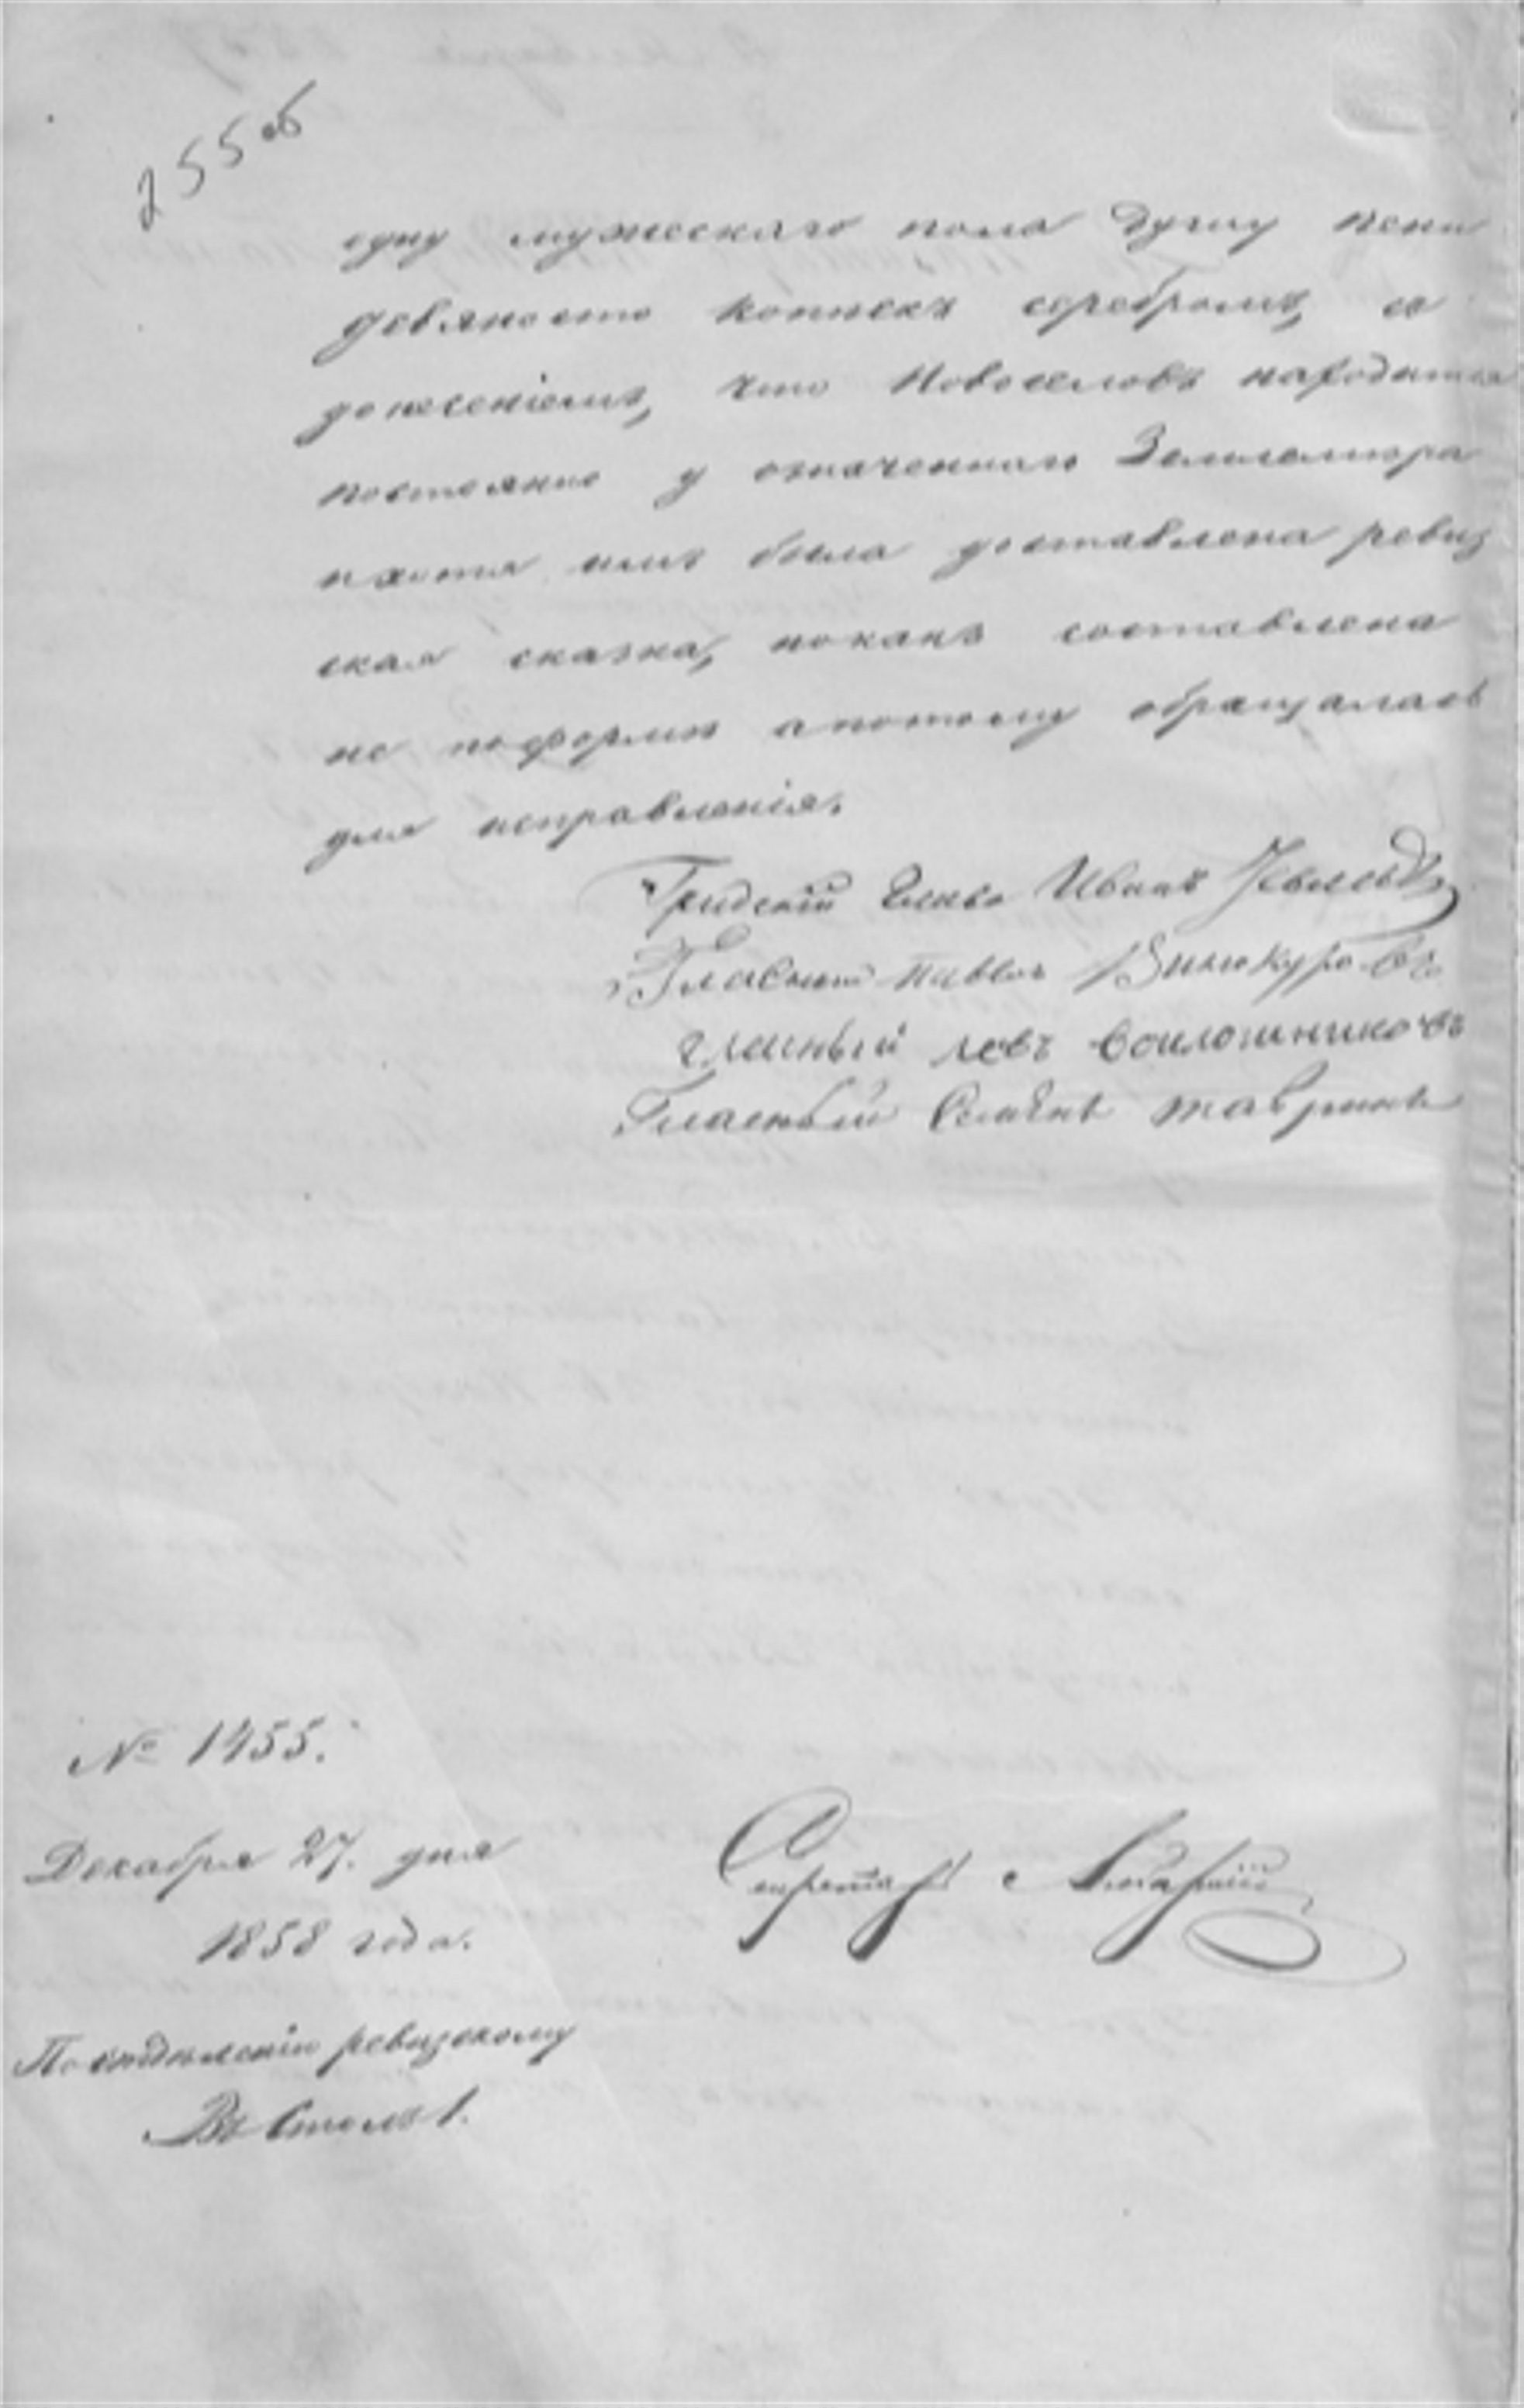 255об
одну мужескаго пола душу пени
девяносто копѣекъ серебромъ, съ
донесеніемъ, что Новоселовъ находится
постоянно у означеннаго Землемѣра
и хотя имъ была доставлена ревиз
ская сказка, но какъ составлена
не по формѣ а потому обращалась
для исправленія.
Градскій Глава Иванъ
Гласный Павелъ Винокуровъ
гласный левъ воилошниковъ
Гласный Семенъ тавринъ
№ 1455.
Декабря 27. дня
1858 года.
Секретарь
По отдѣленію ревизскому
Въ Столъ 1.